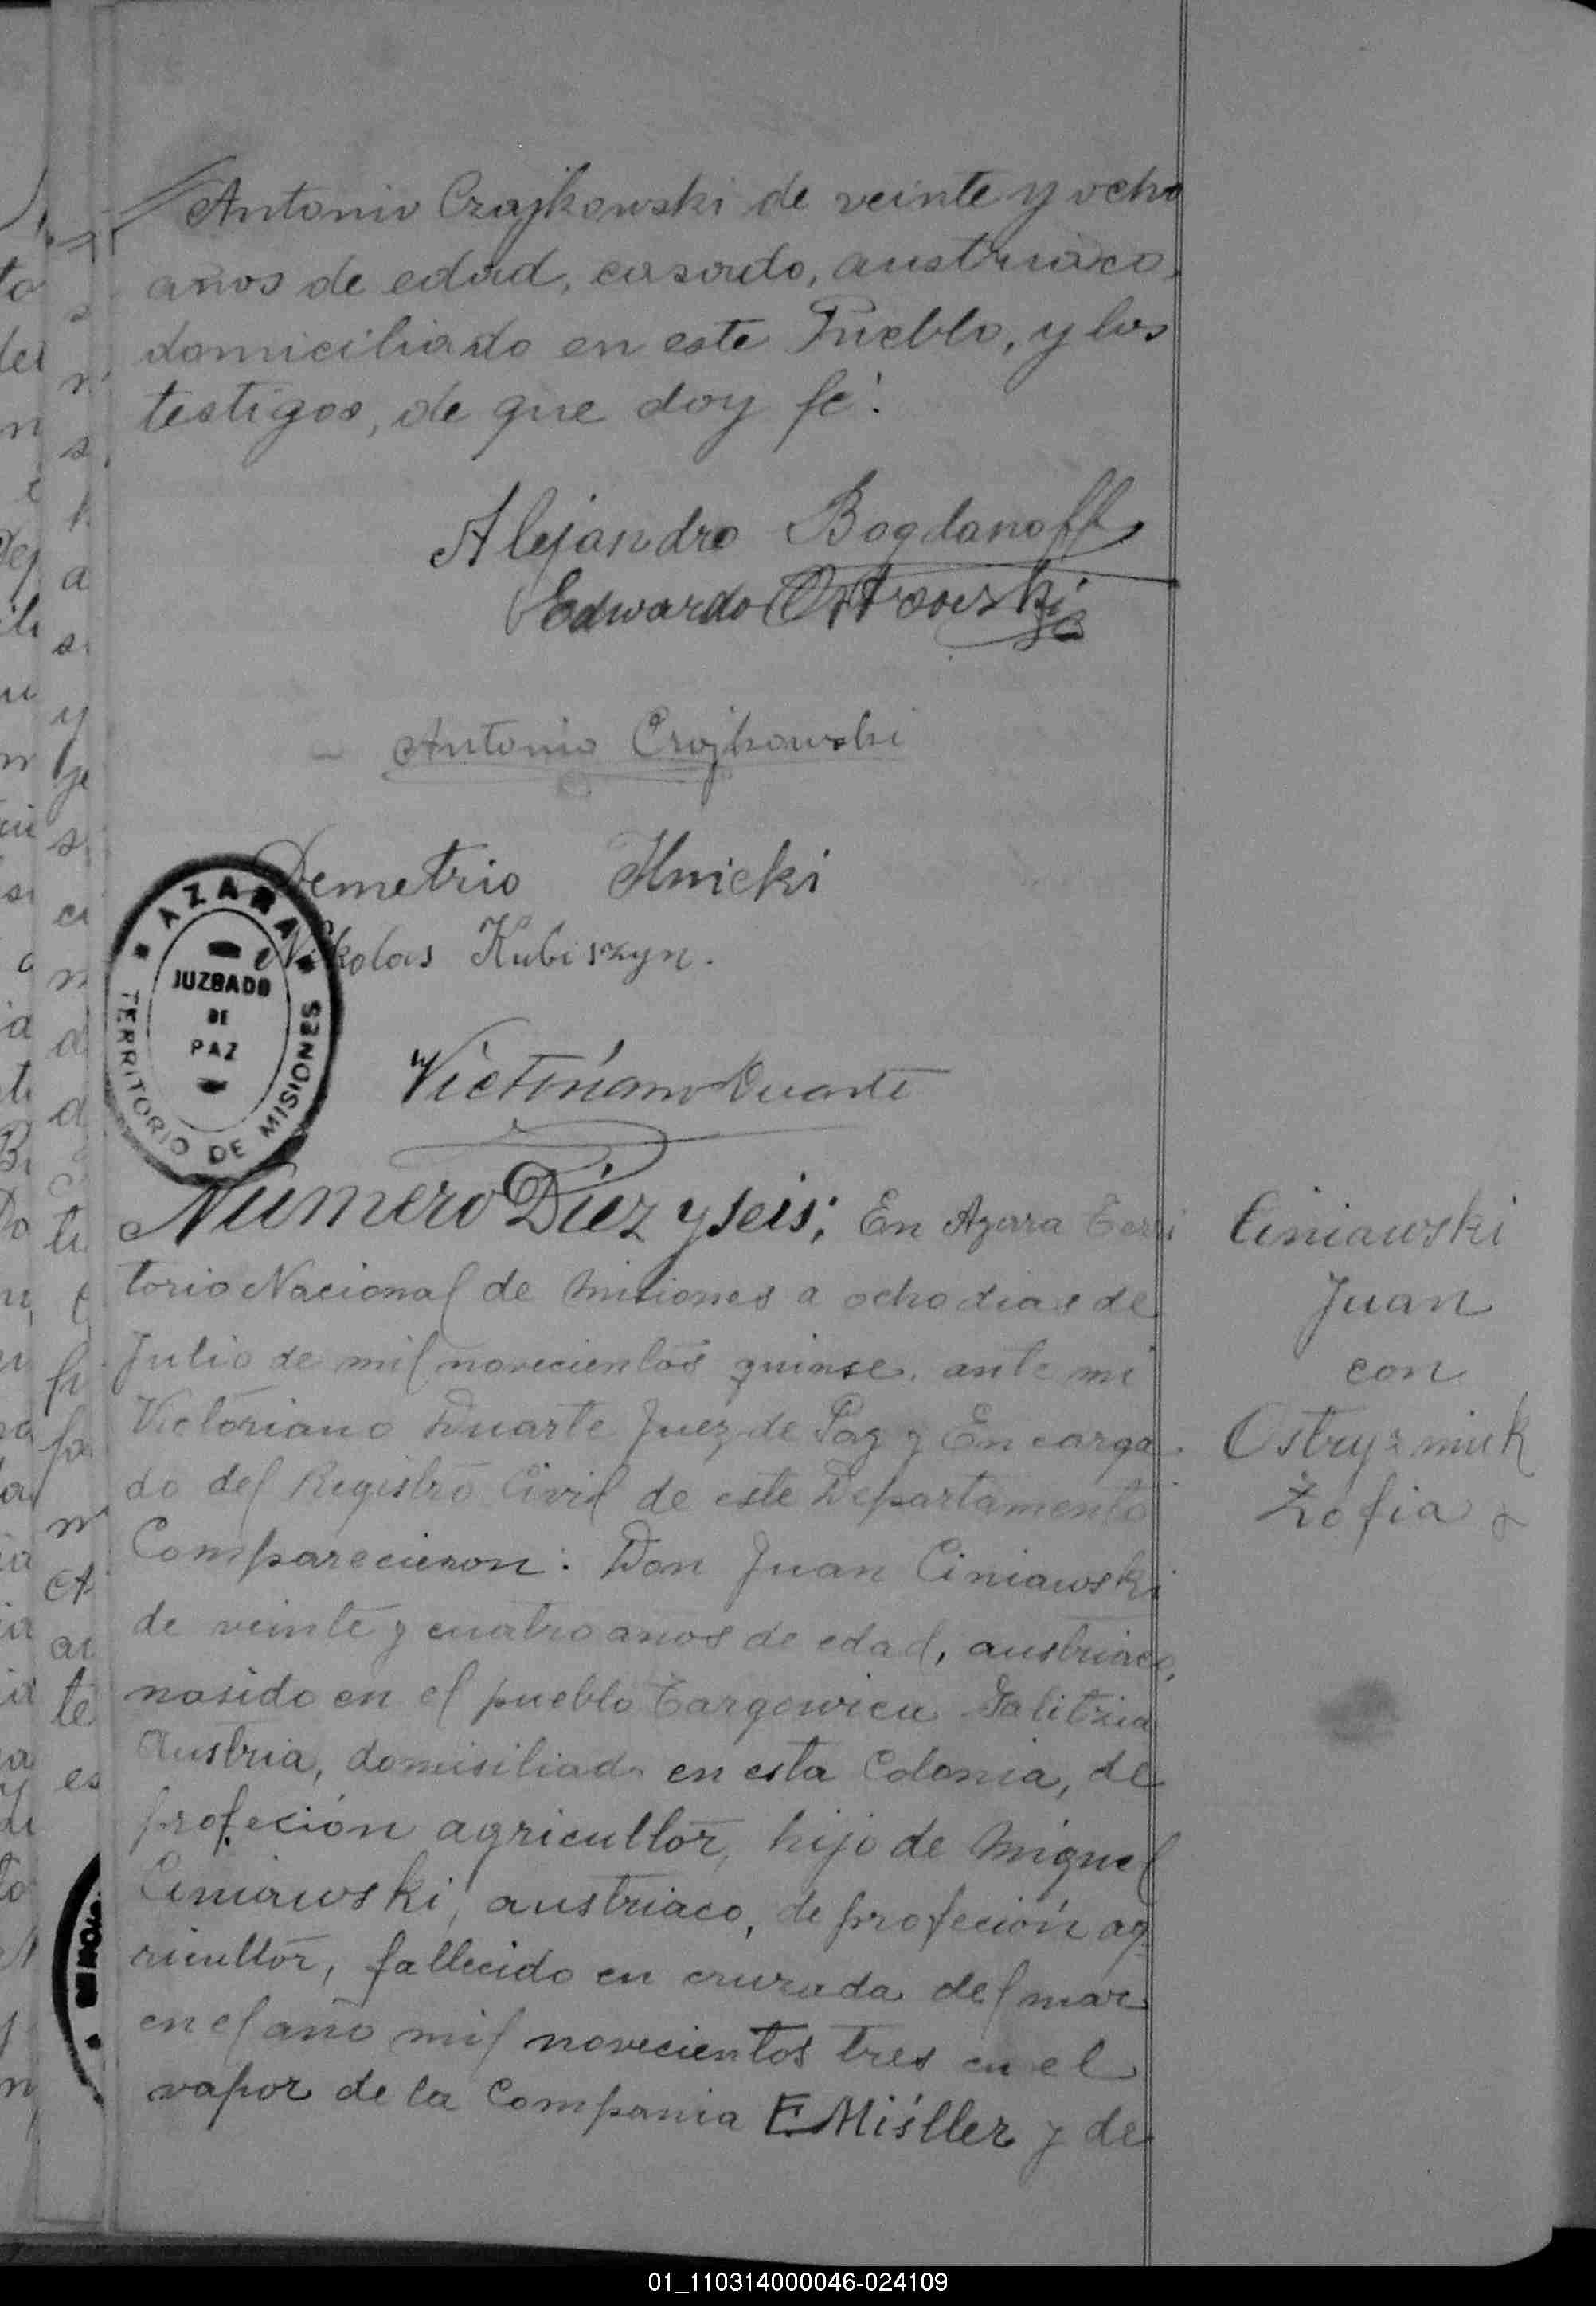 Antonio Czajkowski de veinte y ocho
años de edad, casado, austriaco,
domiciliado en este Pueblo, y los
testigos, de que doy fé.
Alejandro Bogdanoff
Edwardo Ostrowski
Antonio Czajkowski
Demetrio Ilnicki
Nikolas Kubiszyn.
AZARA
JUZGADO
DE
PAZ
TERRITORIO DE MISIONES
Victoriano Duarte
Número Diez y seis; En Azara Terri
torio Nacional de Misiones a ocho dias de
Julio de mil novecientos quinse, ante mi
Victoriano Duarte Juez de Paz y Encarga
do del Registro Civil de este Departamento
Comparecieron: Don Juan Ciniawski
de veinte y cuatro anos de edad, austriaco,
nasido en el pueblo Targowica Galitzia
Austria, domisiliado en esta Colonia, de
profeción agricultor, hijo de Miguel
Ciniawski, austriaco, de profeción ag
ricultor, fallecido en cruzada del mar
en el año mil novecientos tres en el
vapor de la Compania E. Misller y de
Ciniawski
Juan
con
Ostryzniuk
Zofia
01_110314000046-024109